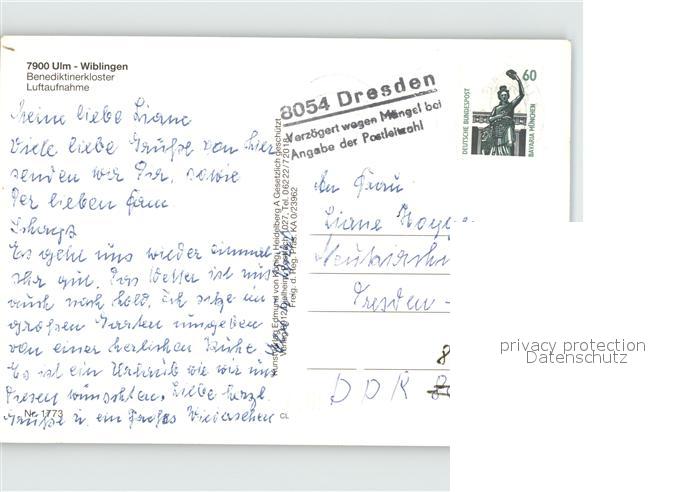 7900 Ulm - Wiblingen
Benediktinerkloster
Luftaufnahme
Meine liebe Liane
Viele liebe Grüße von hier
senden wir Dir, sowie
Der lieben Fam.
Es geht uns wieder einmal
sehr gut. Das Wetter ist uns
auch noch hold. Ich sitze im
großen Garten umgeben
von einer herrlichen Ruhe.
Es ist ein Urlaub wie wir uns
diesen wünschten. Liebe herzl.
Grüße u. ein frohes Wiedersehen
Nr. 1773
CL
Kunstverlag Edmund von König, Heidelberg A Gesetzlich geschützt
Verlag 1027, Tel. 06222/72018
Freig. d. Reg. Präs. KA 0/23962
8054 Dresden
Verzögert wegen Mängel bei
Angabe der Postleitzahl
60
DEUTSCHE BUNDESPOST
BAVARIA MÜNCHEN
An Frau
Liane
Dresden -
8
DDR 8
privacy protection
Datenschutz